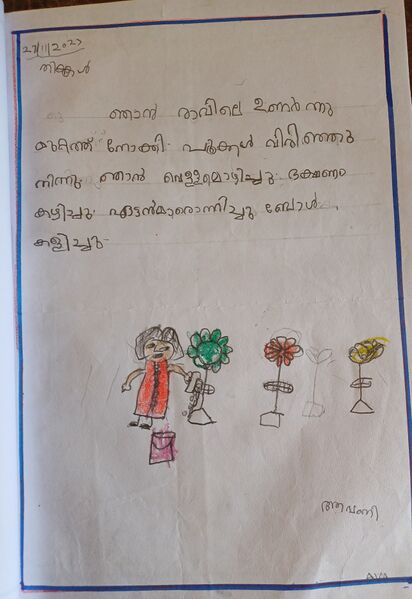 27/11/2023
തിങ്കൾ
ഞാൻ രാവിലെ ഉണർന്നു
മുറ്റത്ത് നോക്കി പൂക്കൾ വിരിഞ്ഞു
നിന്നു ഞാൻ വെള്ളമൊഴിച്ചു ഭക്ഷണം
കഴിച്ചു ഏട്ടൻമാരൊന്നിച്ചു ബോൾ
കളിച്ചു
ആവണി